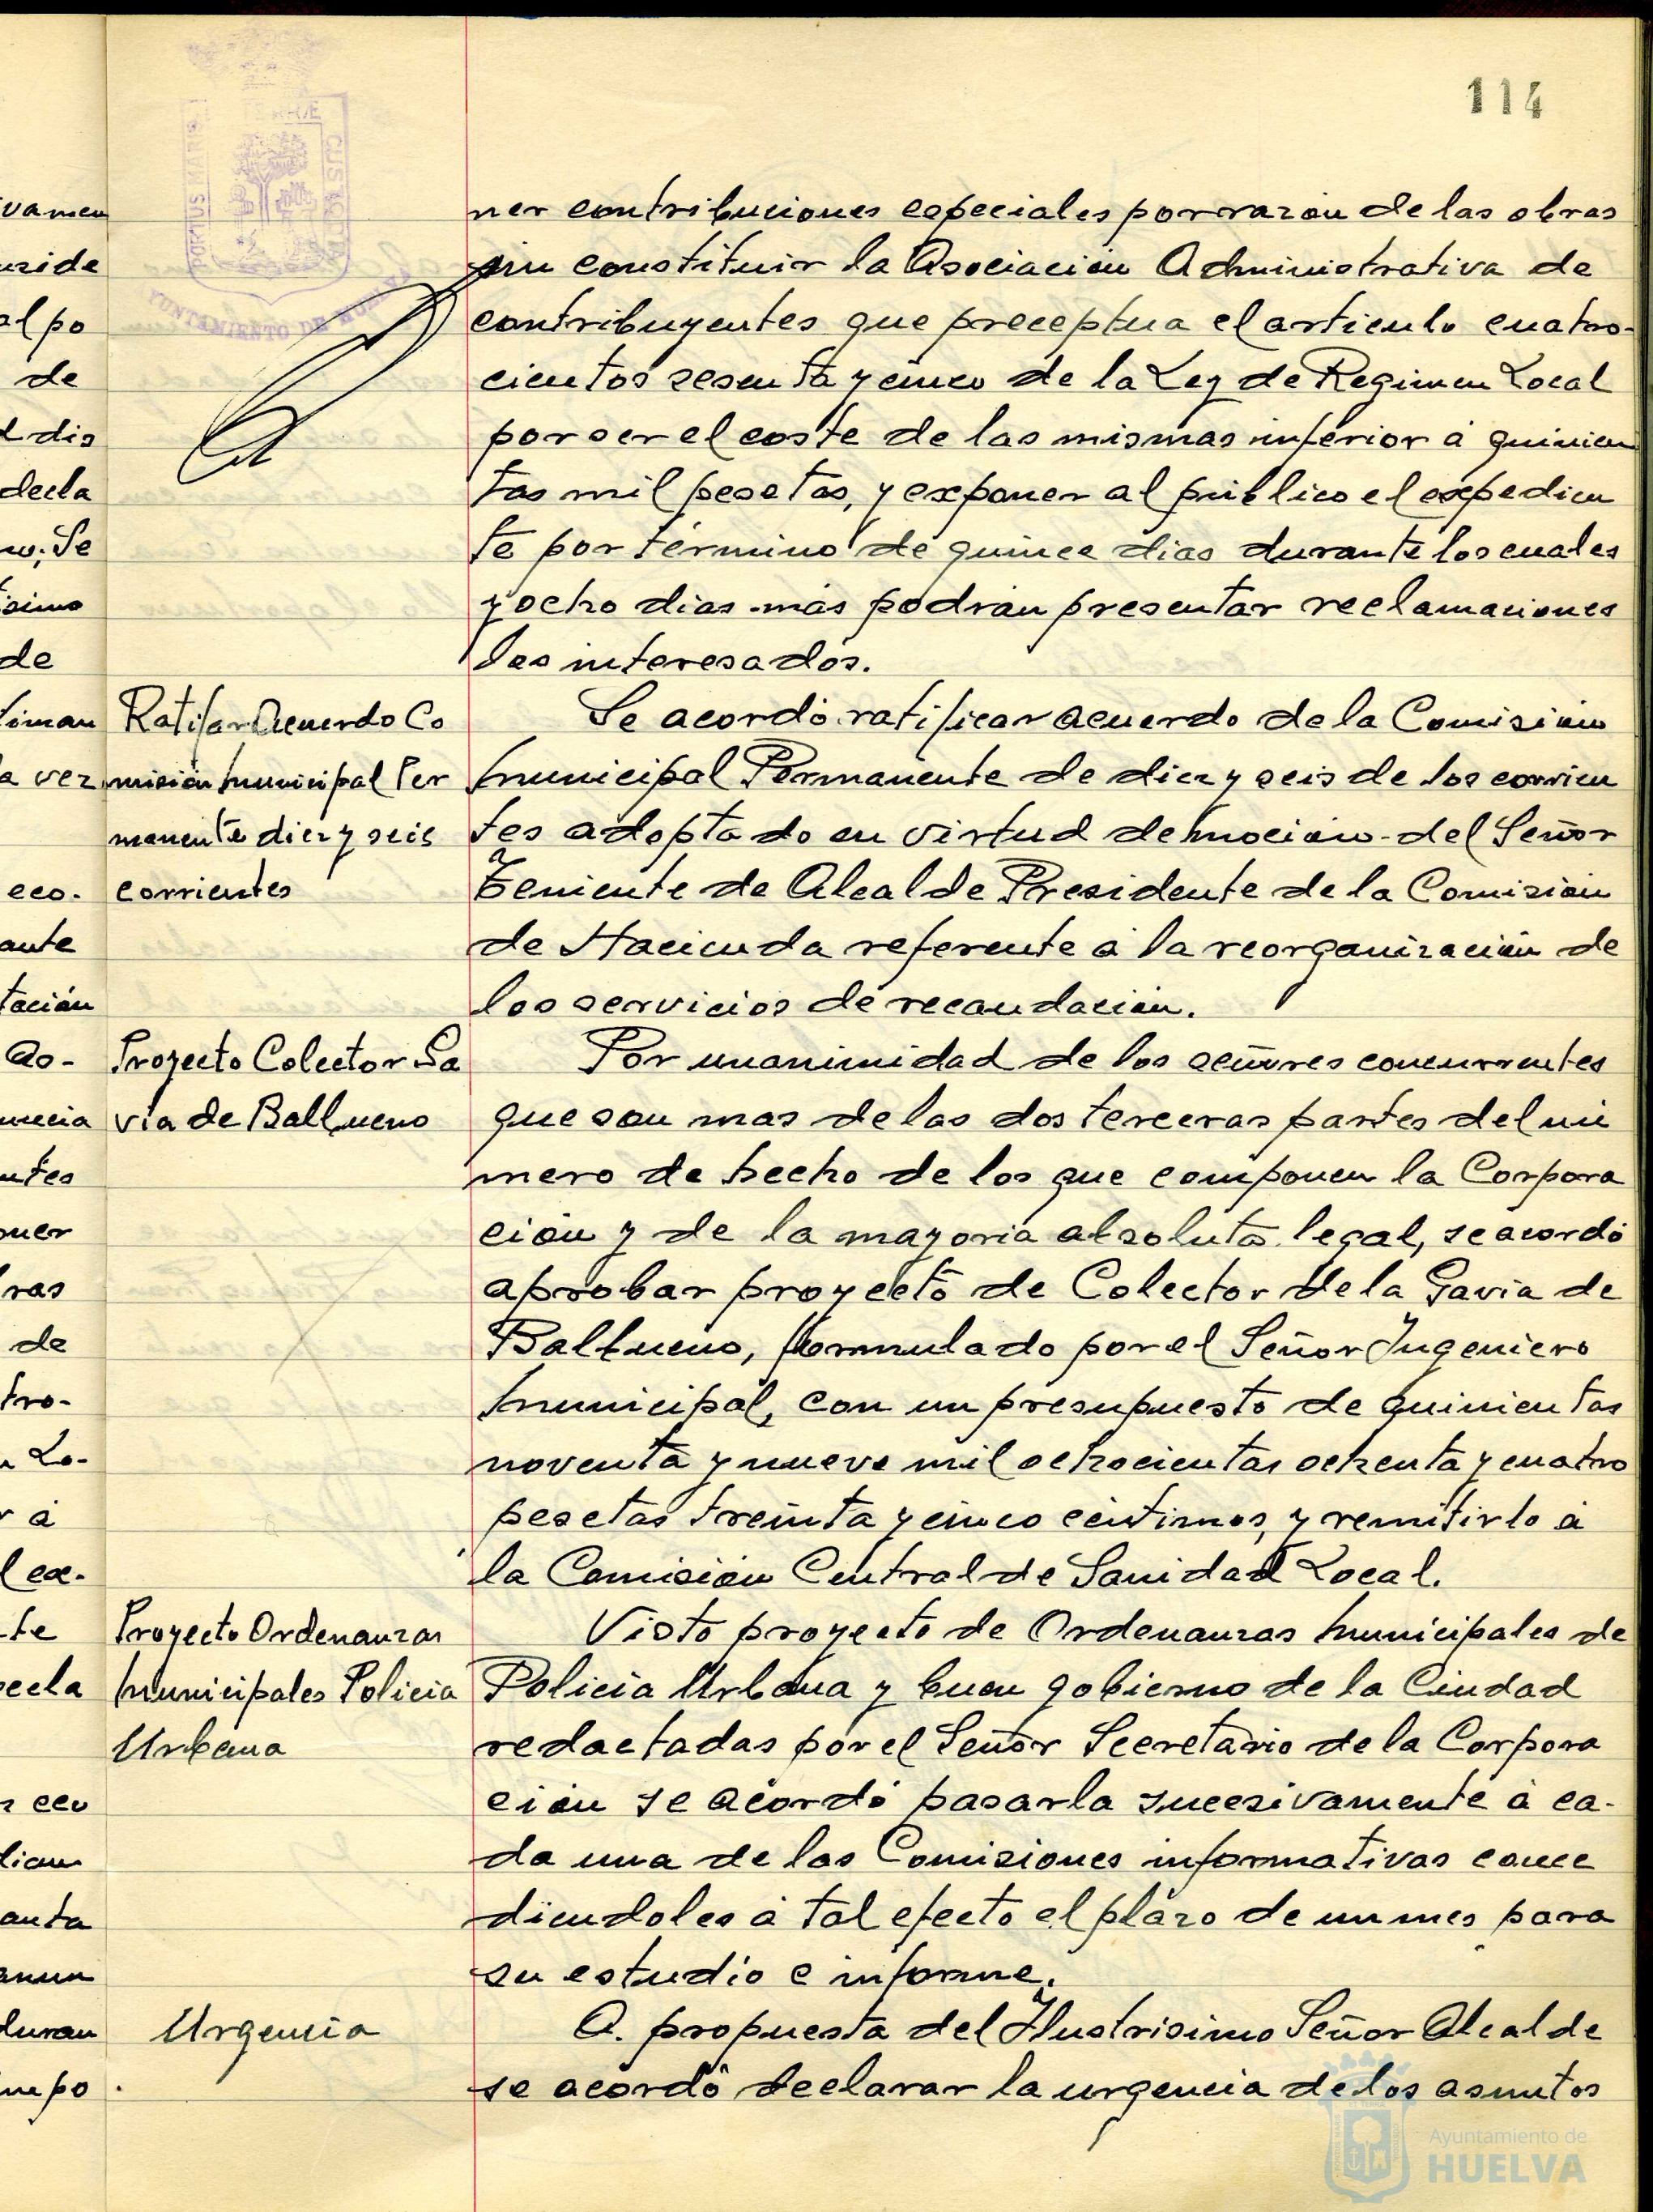 114
PORTUS MARIS
CUSTODIA
AYUNTAMIENTO DE HUELVA
ner contribuciones especiales por razón de las obras
sin constituir la Asociación Administrativa de
contribuyentes que preceptua el articulo cuatro-
cientos sesenta y cinco de la Ley de Regimen Local
por ser el coste de las mismas inferior á quinien
tas mil pesetas, y exponer al público el expedien
te por término de quince dias durante los cuales
y ocho dias más podrán presentar reclamaciones
los interesados.
Ratifar Acuerdo Co
misión Municipal Per
manente diez y seis
corrientes
Se acordó ratificar acuerdo de la Comisión
Municipal Permanente de diez y seis de los corrien
tes adoptado en virtud de moción del Señor
Teniente de Alcalde Presidente de la Comisión
de Hacienda referente á la reorganización de
los servicios de recaudación.
Proyecto Colector Ga
via de Balbueno
Por unanimidad de los señores concurrentes
que son mas de las dos terceras partes del nú
mero de hecho de los que componen la Corpora
ción y de la mayoria absoluta legal, se acordó
aprobar proyecto de Colector de la Gavia de
Balbueno, formulado por el Señor Ingeniero
Municipal, con un presupuesto de quinientas
noventa y nueve mil ochocientas ochenta y cuatro
pesetas treinta y cinco céntimos, y remitirlo á
la Comisión Central de Sanidad Local.
Proyecto Ordenanzas
Municipales Policia
Urbana
Visto proyecto de Ordenanzas Municipales de
Policia Urbana y buen gobierno de la Ciudad
redactadas por el Señor Secretario de la Corpora
ción se acordó pasarla sucesivamente á ca-
da una de las Comisiones informativas conce
diendoles á tal efecto el plazo de un mes para
su estudio e informe.
Urgencia
A propuesta del Ilustrisimo Señor Alcalde
se acordó declarar la urgencia de los asuntos
Ayuntamiento de
HUELVA